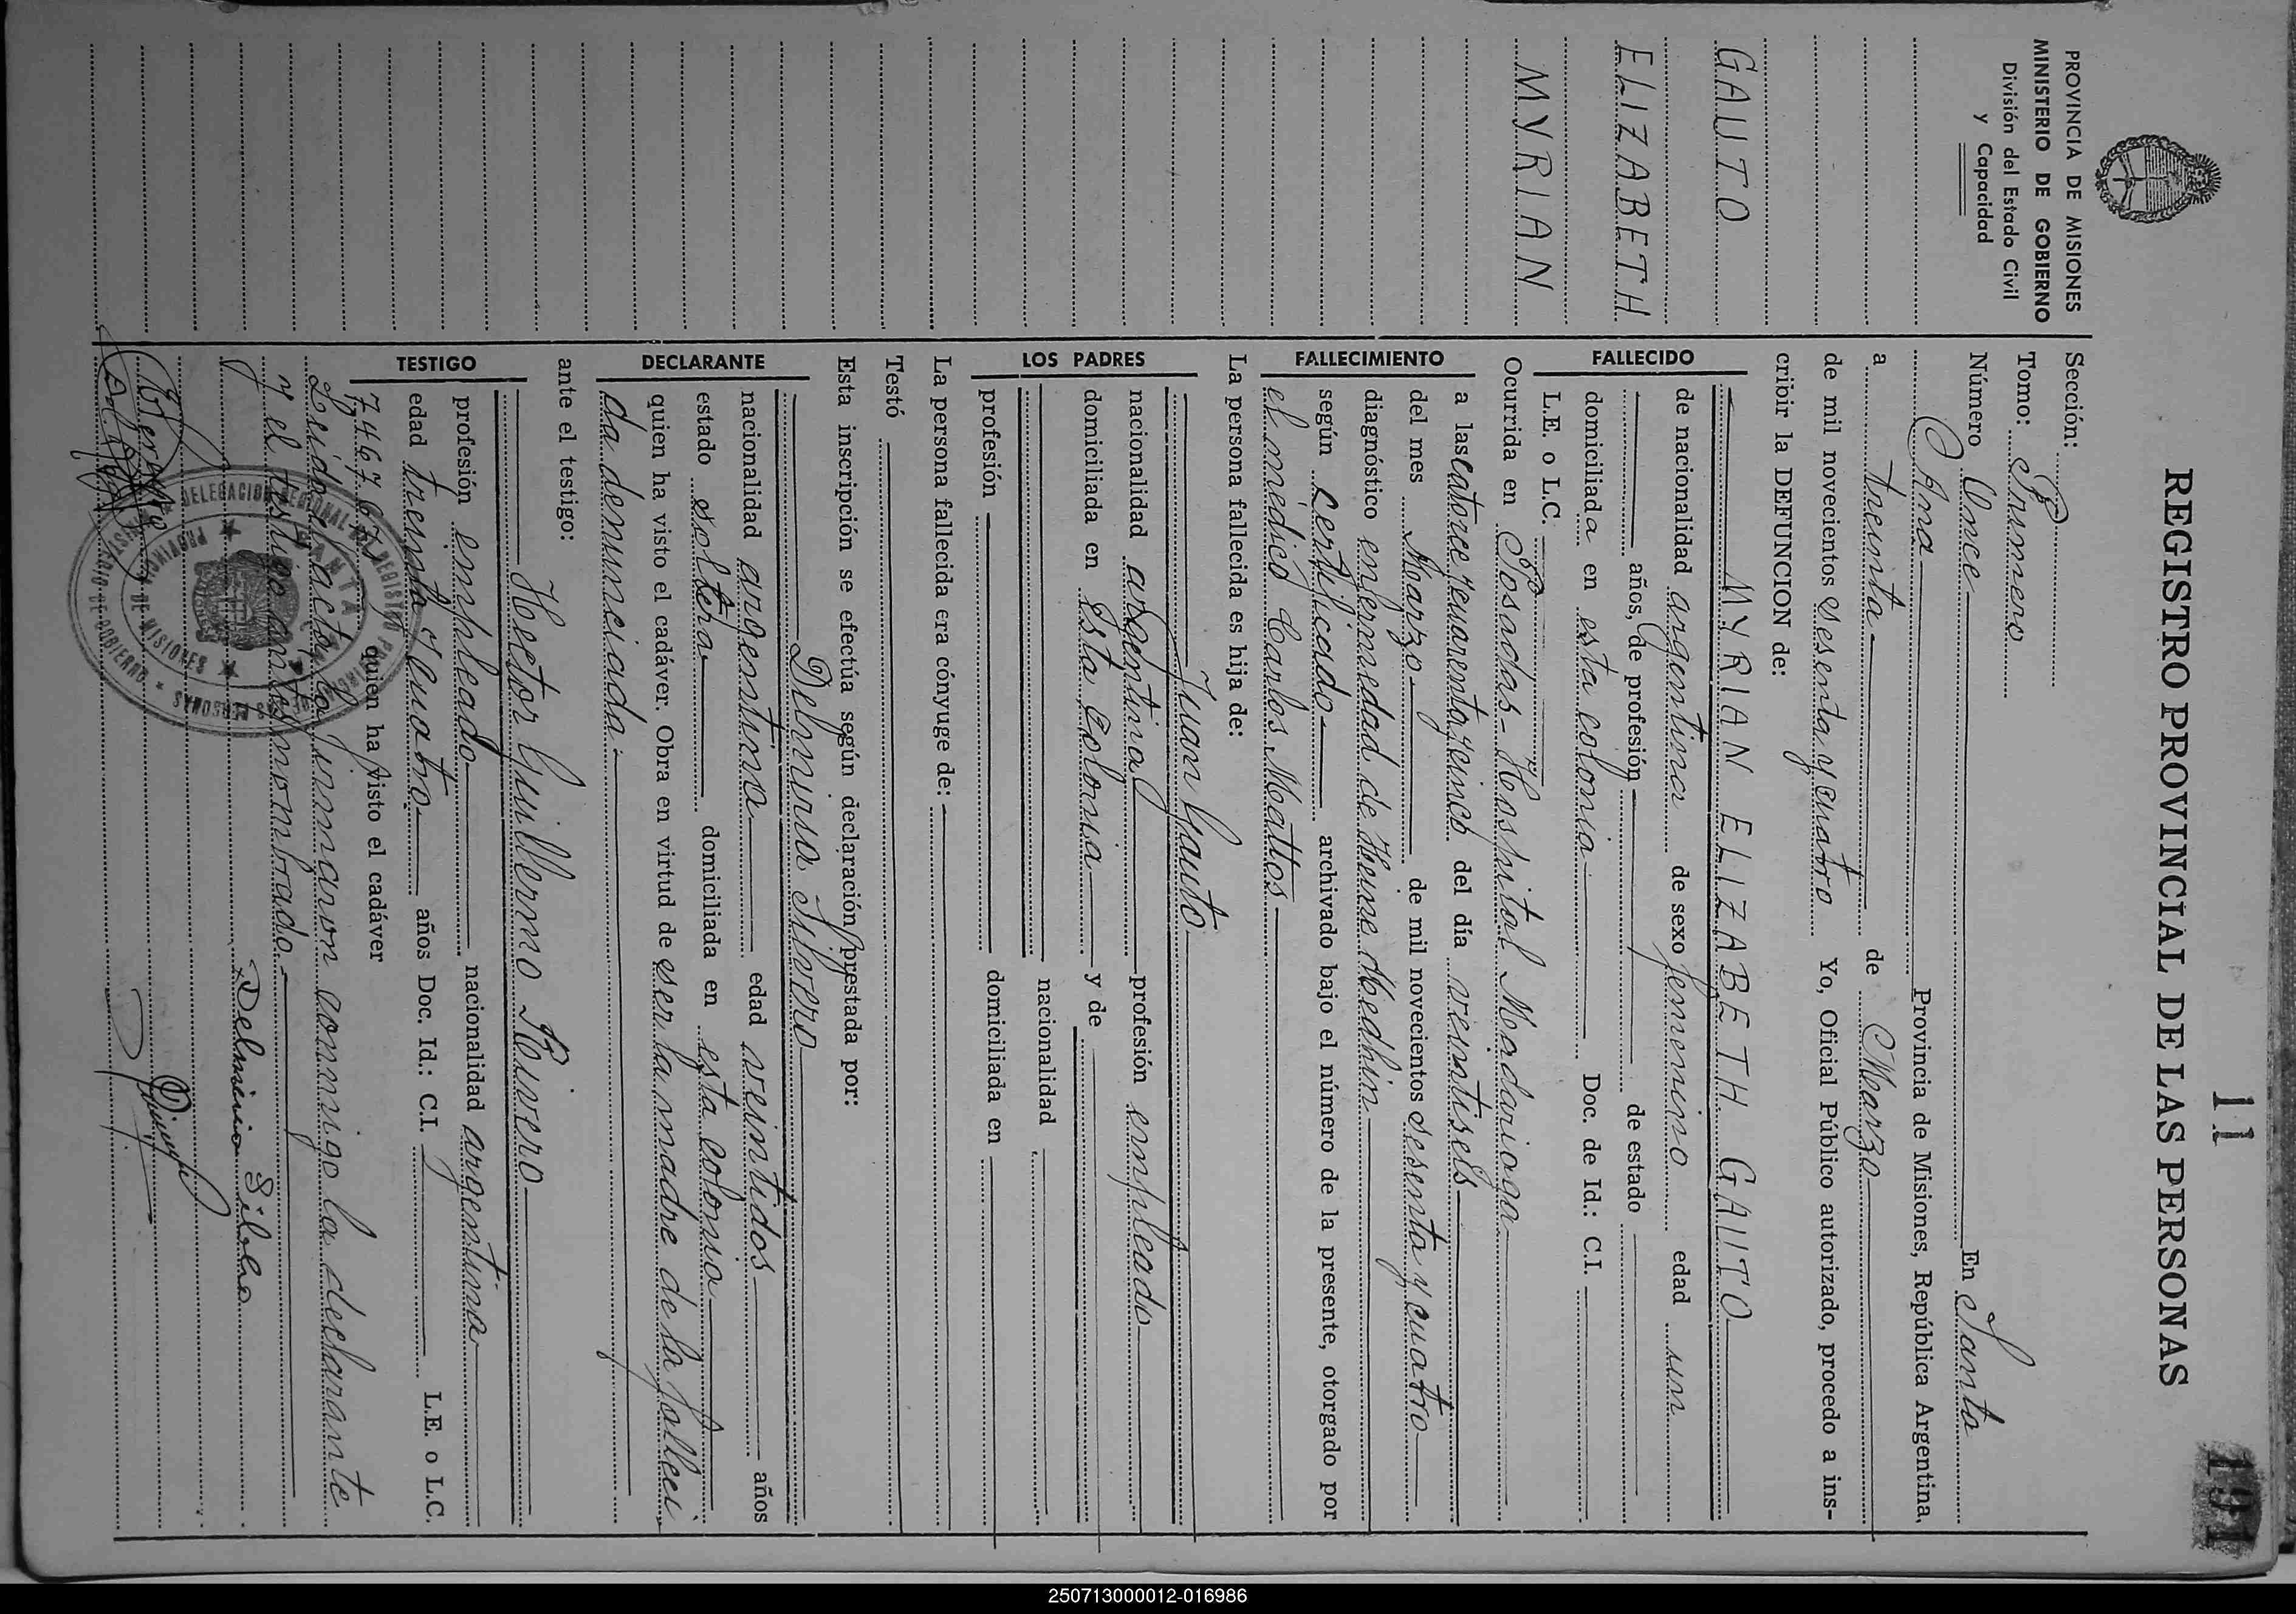 11
191
REGISTRO PROVINCIAL DE LAS PERSONAS
PROVINCIA DE MISIONES
MINISTERIO DE GOBIERNO
División del Estado Civil
y Capacidad
GAUTO
ELIZABETH
MYRIAN
Sección: P
Tomo: Primero
Número Once En Santa
Ana Provincia de Misiones, República Argentina,
a treinta de Marzo
de mil novecientos sesenta y cuatro Yo, Oficial Público autorizado, procedo a ins-
cribir la DEFUNCION de:
FALLECIDO
MYRIAN ELIZABETH GAUTO
de nacionalidad argentina de sexo femenino edad un
años, de profesión de estado
domiciliada en esta colonia Doc. de Id.: C.I.
L.E. o L.C.
Ocurrida en Posadas - Hospital Madariaga
FALLECIMIENTO
a las catorce y cuarenta y cinco del día veintiseis
del mes Marzo de mil novecientos sesenta y cuatro
diagnóstico enfermedad de Heine Medhin
según certificado archivado bajo el número de la presente, otorgado por
el médico Carlos Mattos
La persona fallecida es hija de:
LOS PADRES
Juan Gauto
nacionalidad argentina profesión empleado
domiciliada en esta Colonia y de
nacionalidad
profesión domiciliada en
La persona fallecida era cónyuge de:
Testó
Esta inscripción se efectúa según declaración prestada por:
DECLARANTE
Delmira Silvero
nacionalidad argentina edad veintidos años
estado soltera domiciliada en esta colonia
quien ha visto el cadáver. Obra en virtud de ser la madre de la falleci
da denunciada.
ante el testigo:
TESTIGO
Hector Guillermo Rivero
profesión empleado nacionalidad argentina
edad treinta y cuatro años Doc. Id.: C.I. L.E. o L.C.
7.467.671 quien ha visto el cadáver
Leída el acta, la firmaron conmigo la declarante
y el testigo antes nombrado.
Delmira Silbero
DELEGACION REGIONAL REGISTRO PROVINCIAL DE LAS PERSONAS
SANTA ANA
PROVINCIA DE MISIONES
MINISTERIO DE GOBIERNO
250713000012-016986